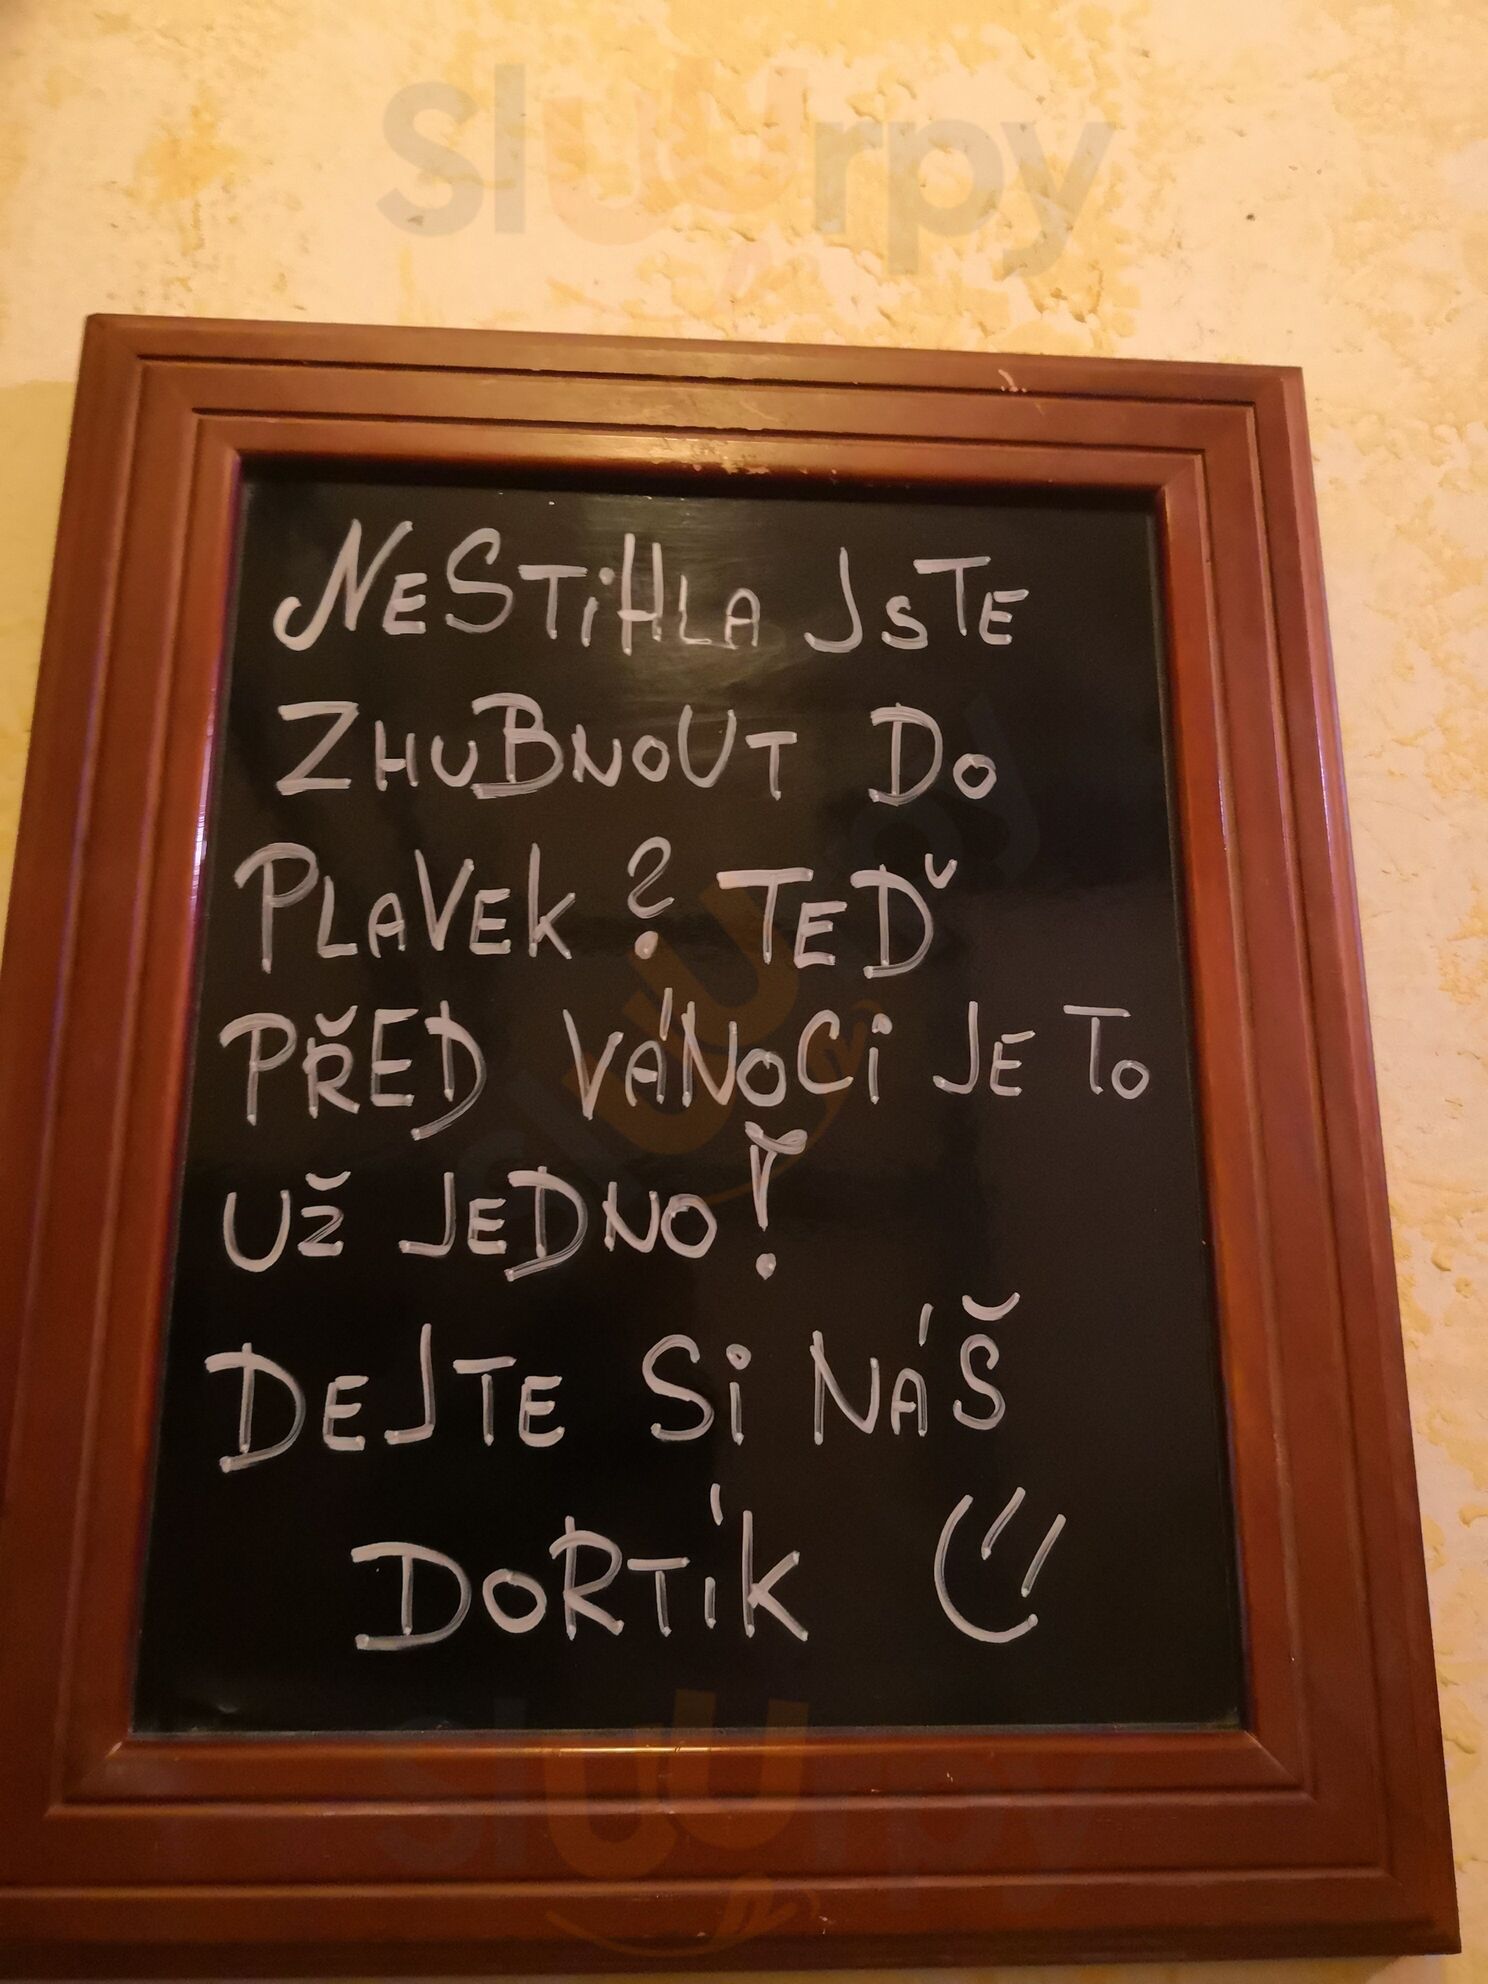 sluurpy
NESTIHLA JSTE
ZHUBNOUT DO
PLAVEK? TEĎ
PŘED VÁNOCI JE TO
UŽ JEDNO!
DEJTE SI NÁŠ
DORTÍK
sluurpy
sluurpy